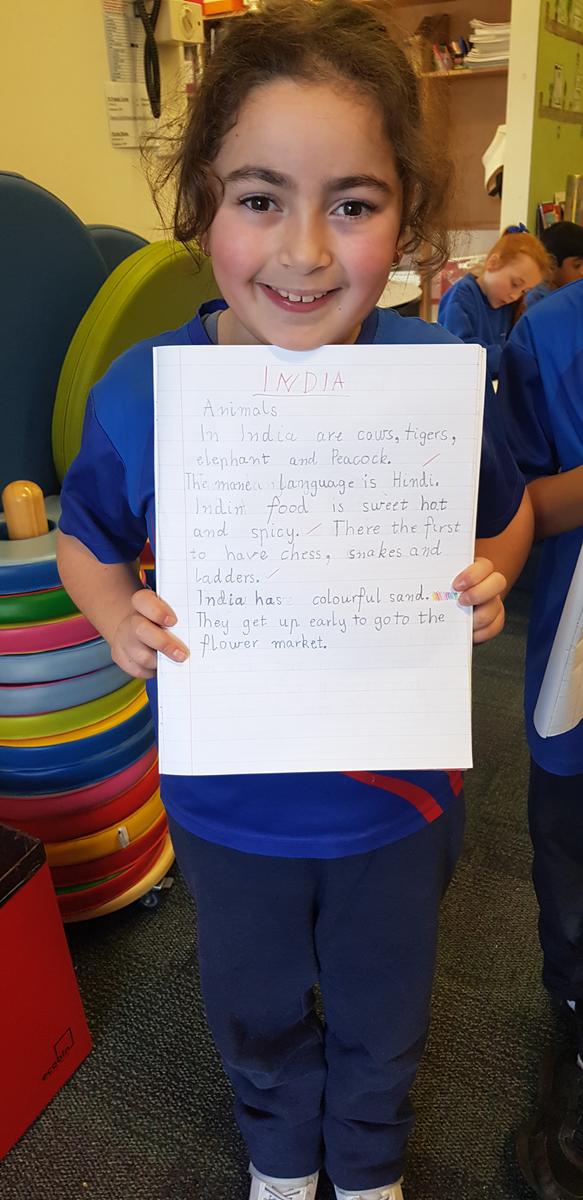 INDIA
Animals
In India are cows, tigers,
elephant and Peacock.
The mane language is Hindi.
Indin food is sweet hot
and spicy. There the first
to have chess, snakes and
ladders.
India has colourful sand.
They get up early to go to the
flower market.
ecobin